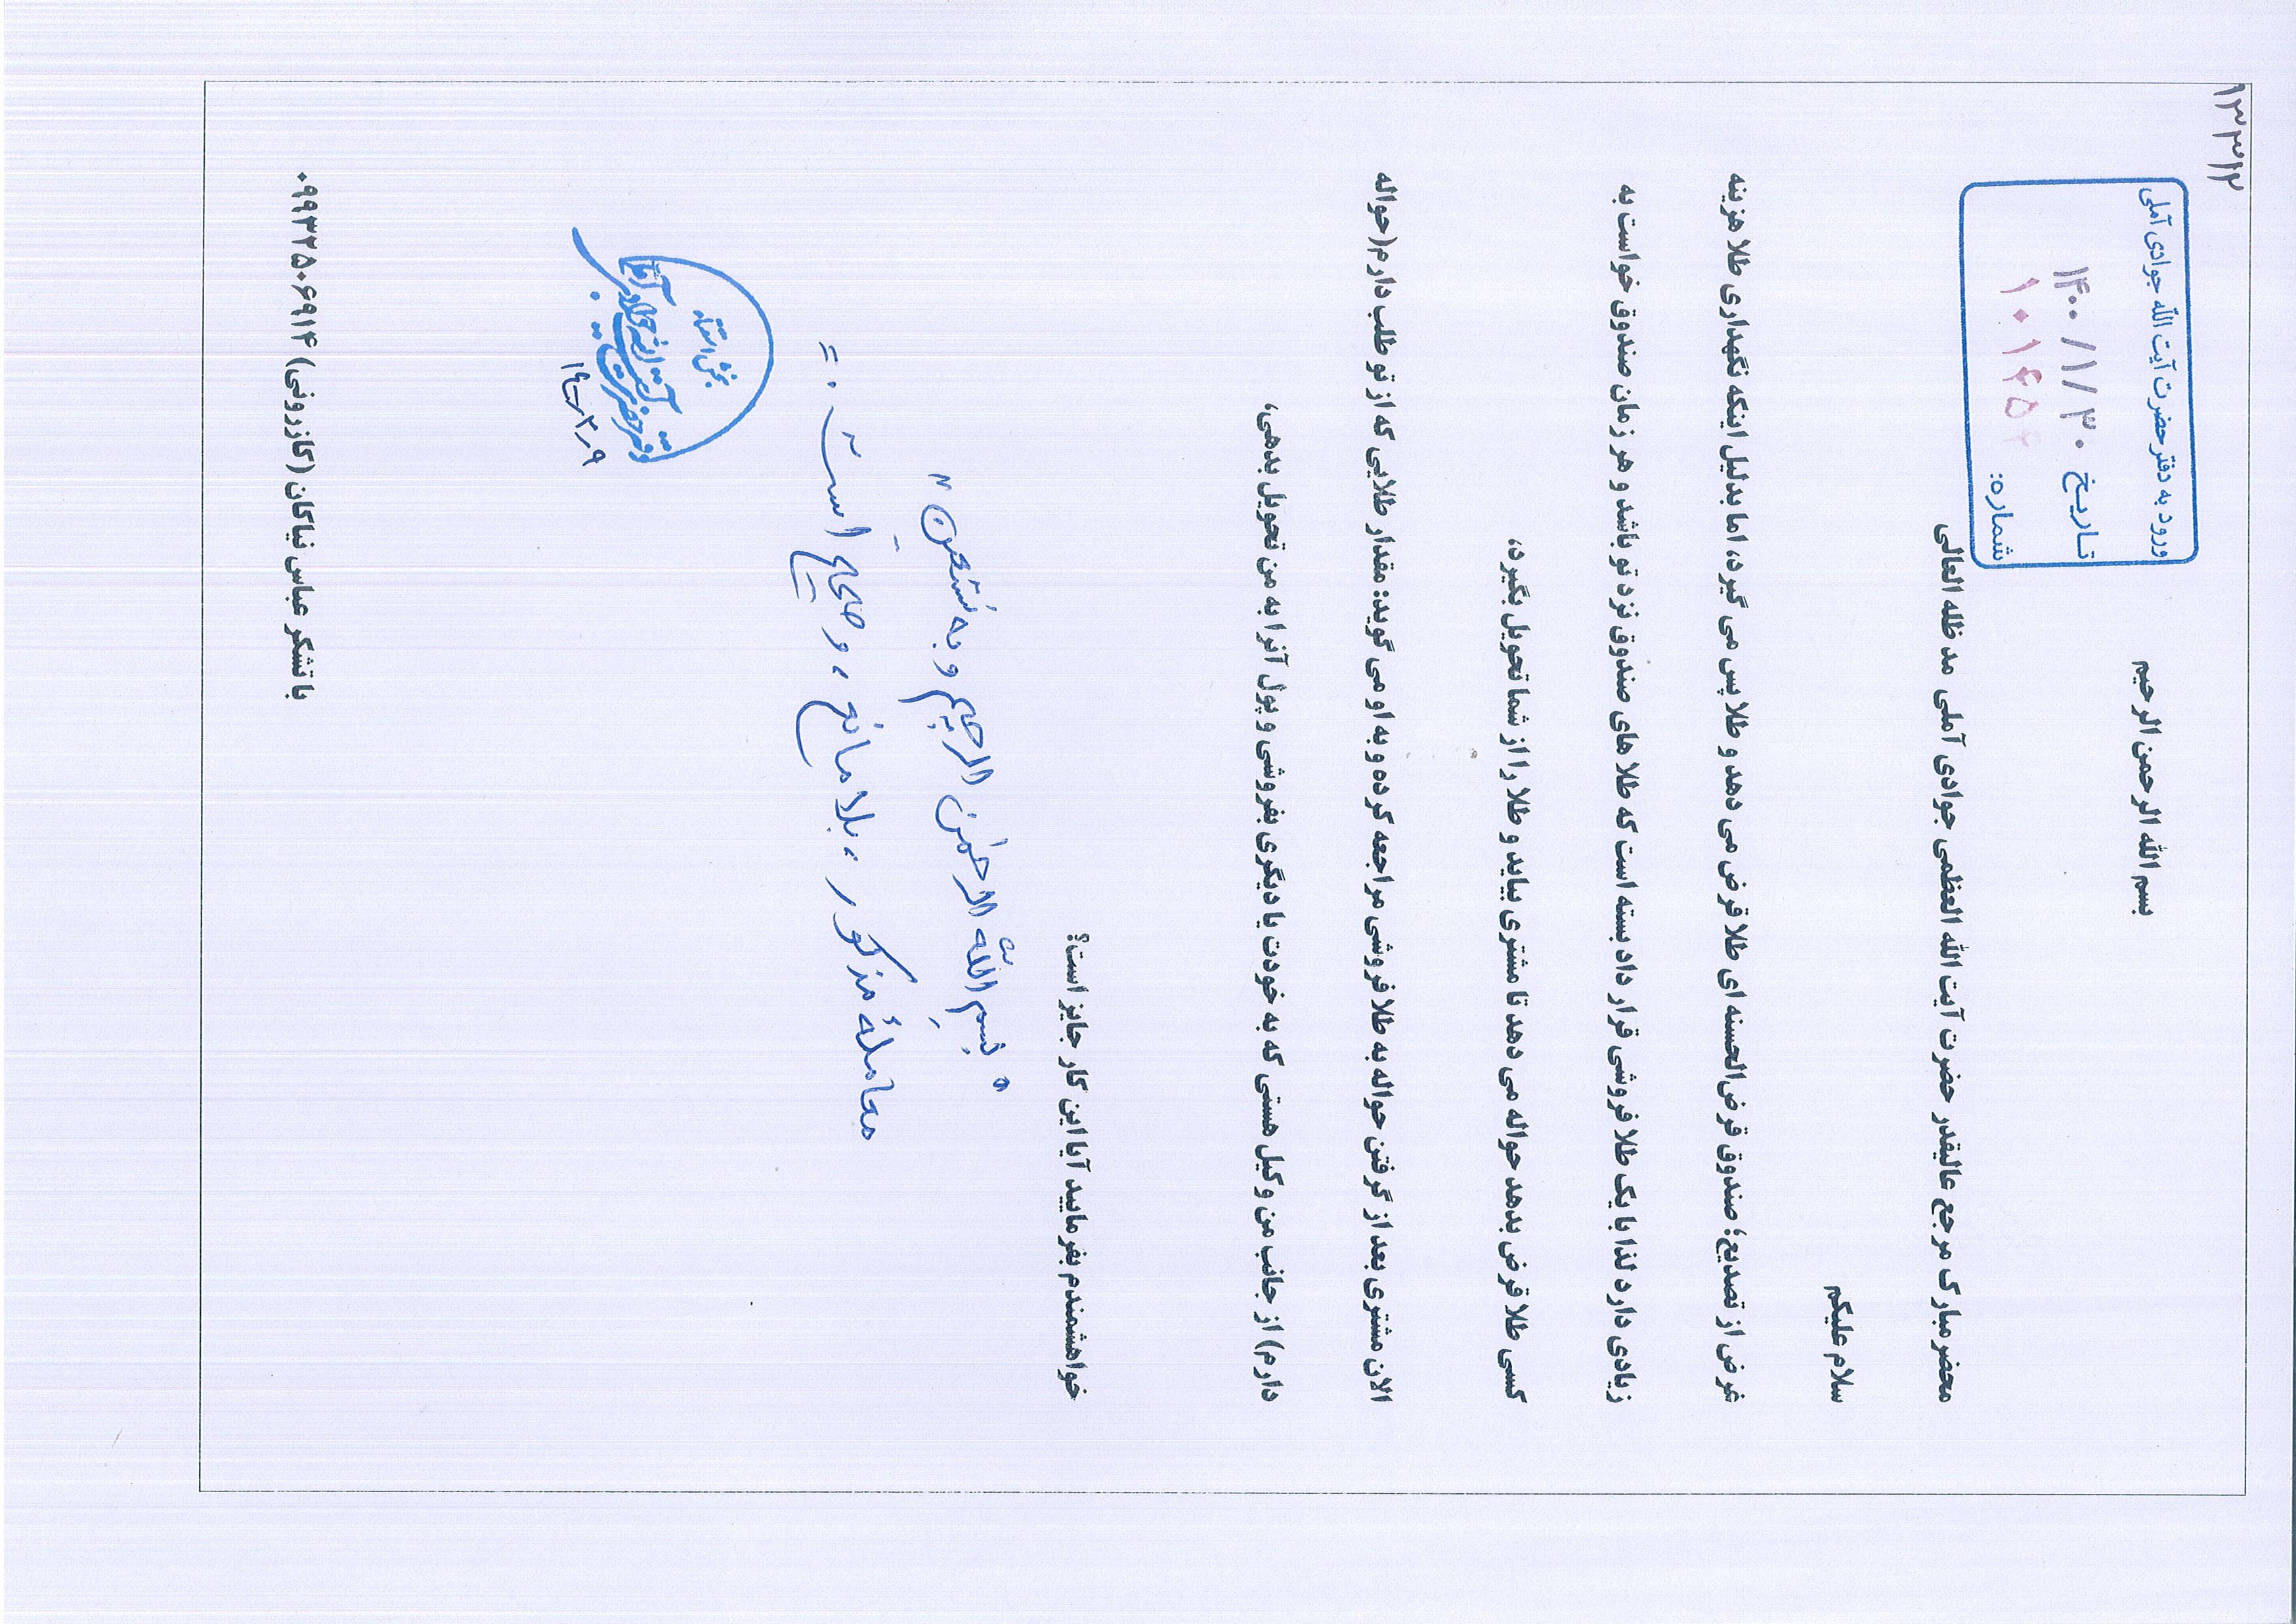 ۹۳۳۱۲
ورود به دفتر حضرت آیت الله جوادی آملی
تاریخ ۱۴۰۰/۱/۳۰
شماره: ۱۰۱۶۵۲
بسم الله الرحمن الرحیم
محضر مبارک مرجع عالیقدر حضرت آیت الله العظمی جوادی آملی مد ظله العالی
سلام علیکم
غرض از تصدیع؛ صندوق قرض‌الحسنه ای طلا قرض می دهد و طلا پس می گیرد، اما بدلیل اینکه نگهداری طلا هزینه
زیادی دارد لذا با یک طلا فروشی قرار داد بسته است که طلا های صندوق نزد تو باشد و هر زمان صندوق خواست به
کسی طلا قرض بدهد حواله می دهد تا مشتری بیاید و طلا را از شما تحویل بگیرد،
الان مشتری بعد از گرفتن حواله به طلا فروشی مراجعه کرده و به او می گوید: مقدار طلایی که از تو طلب دارم(حواله
دارم) از جانب من وکیل هستی که به خودت یا دیگری بفروشی و پول آنرا به من تحویل بدهی،
خواهشمندم بفرمایید آیا این کار جایز است؟
" بسم الله الرحمن الرحیم و به نستعین "
معاملهٔ مذکور، بلامانع، و صحیح است.=
بخش استفتاء
دفتر حضرت آیت الله جوادی آملی
۱۴۰۰/۲/۹
با تشکر عباس نیاکان (کازرونی) ۰۹۹۳۲۵۰۶۹۱۴